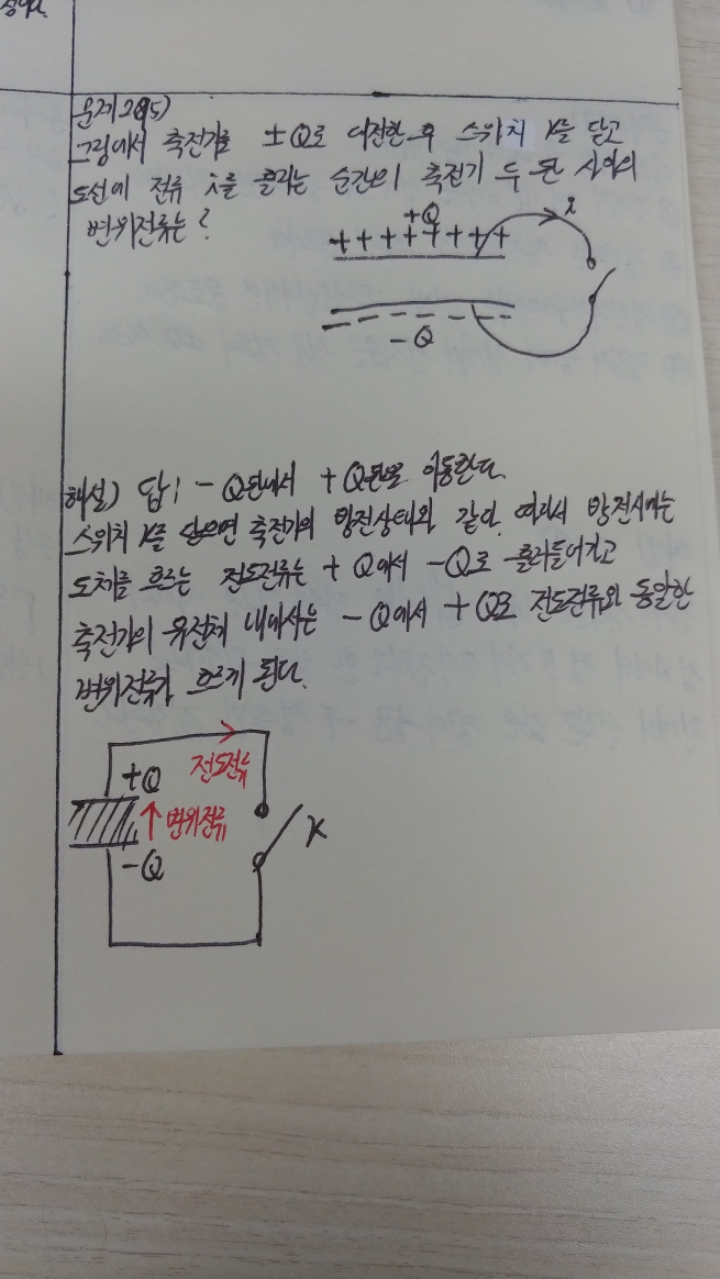 문제 2(15)
그림에서 축전기를 ±Q로 대전한 후 스위치 K를 닫고
도선에 전류 i를 흘리는 순간의 축전기 두 판 사이의
변위전류는?
+Q
i
+ + + + + + + +
- Q
해설) 답: - Q판에서 + Q판으로 이동한다.
스위치 K를 닫으면 축전기의 방전상태와 같다. 따라서 방전시에는
도체를 흐르는 전도전류는 + Q에서 -Q로 흘러들어가고
축전기의 유전체 내에서는 - Q에서 + Q로 전도전류와 동일한
변위전류가 흐르게 된다.
+Q 전도전류
↑ 변위전류 K
-Q